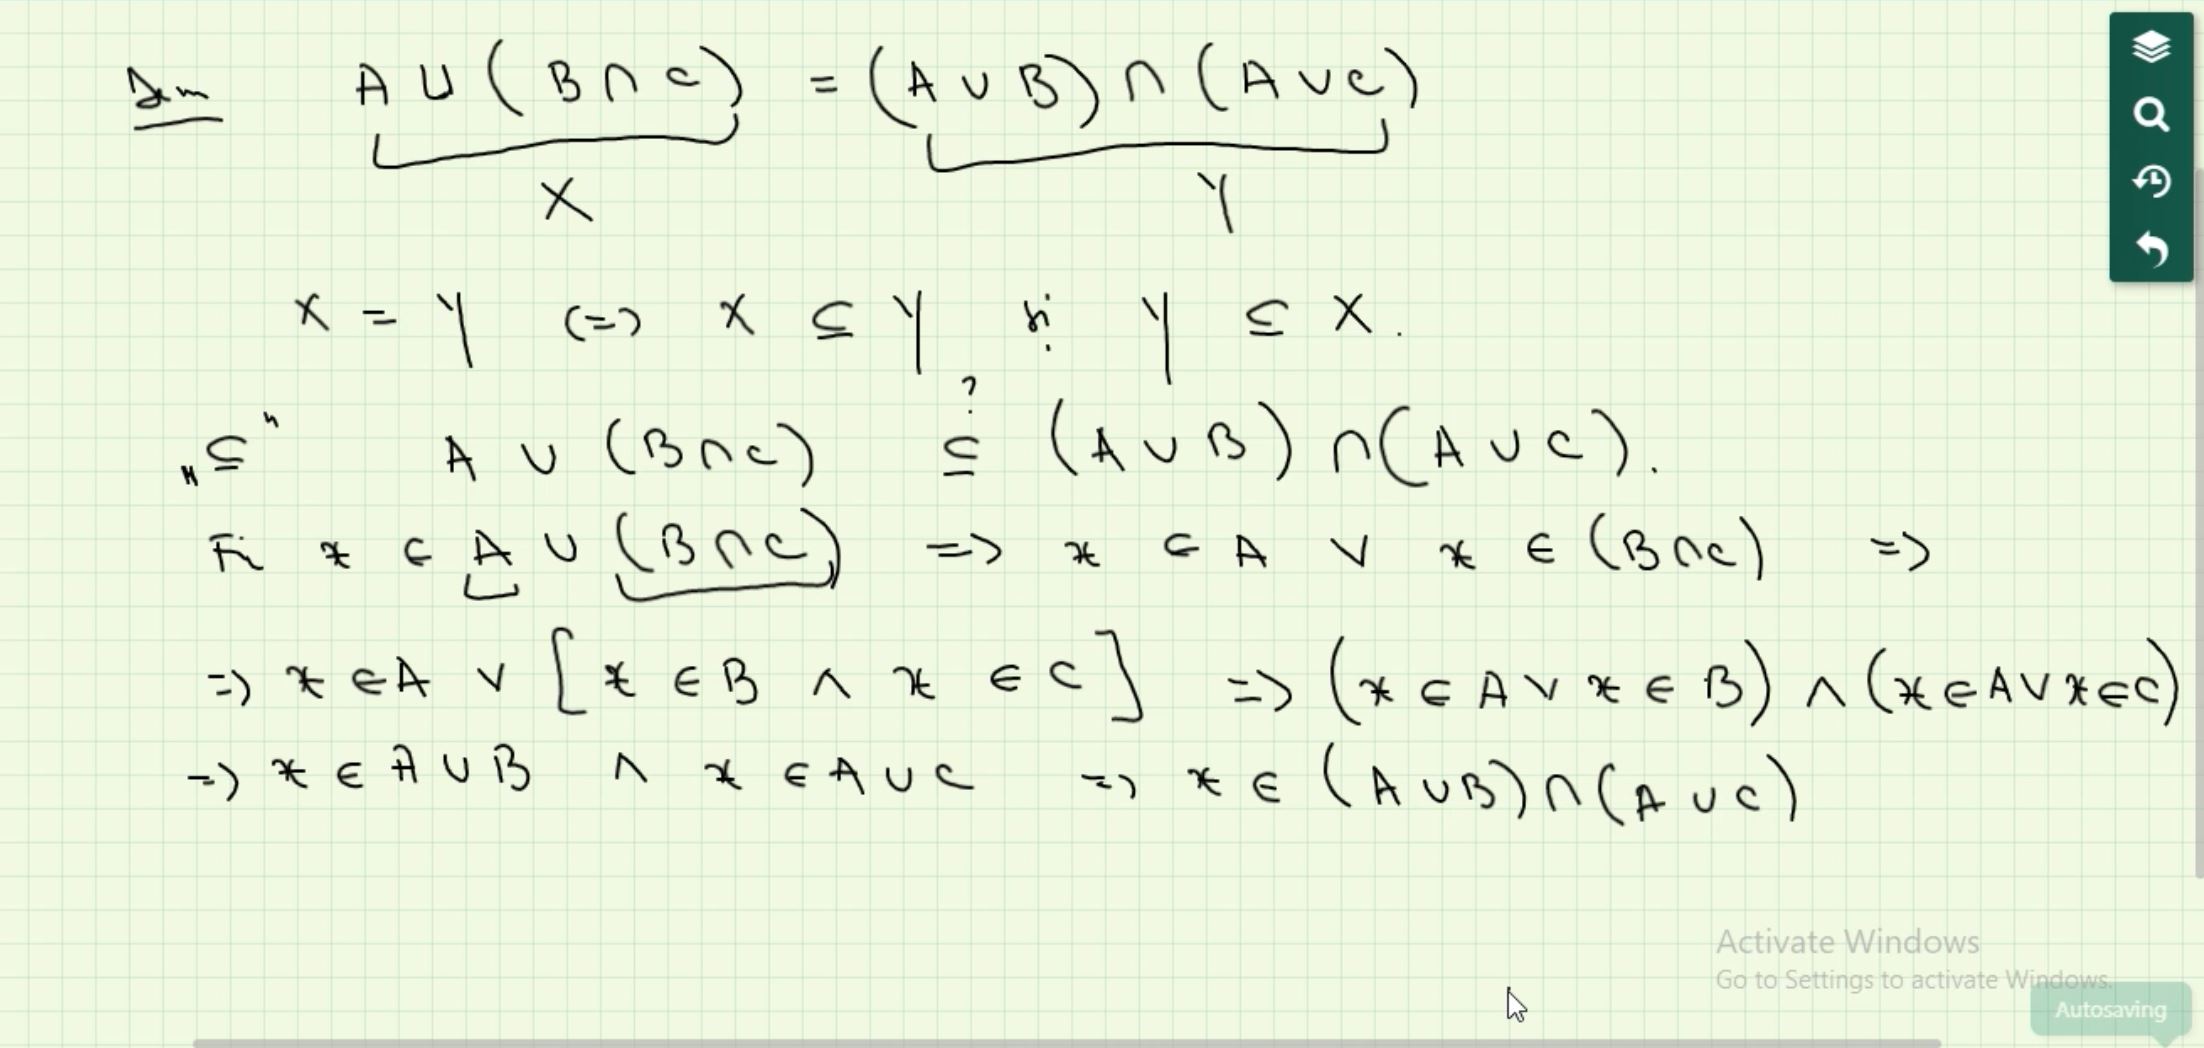 Dem A ∪ (B ∩ C) = (A ∪ B) ∩ (A ∪ C)
X Y
X = Y (=> X ⊆ Y și Y ⊆ X.
„⊆" A ∪ (B ∩ C) ⊆? (A ∪ B) ∩ (A ∪ C).
Fie x ∈ A ∪ (B ∩ C) => x ∈ A ∨ x ∈ (B ∩ C) =>
=> x ∈ A ∨ [x ∈ B ∧ x ∈ C] => (x ∈ A ∨ x ∈ B) ∧ (x ∈ A ∨ x ∈ C)
=> x ∈ A ∪ B ∧ x ∈ A ∪ C => x ∈ (A ∪ B) ∩ (A ∪ C)
Activate Windows
Go to Settings to activate Windows.
Autosaving